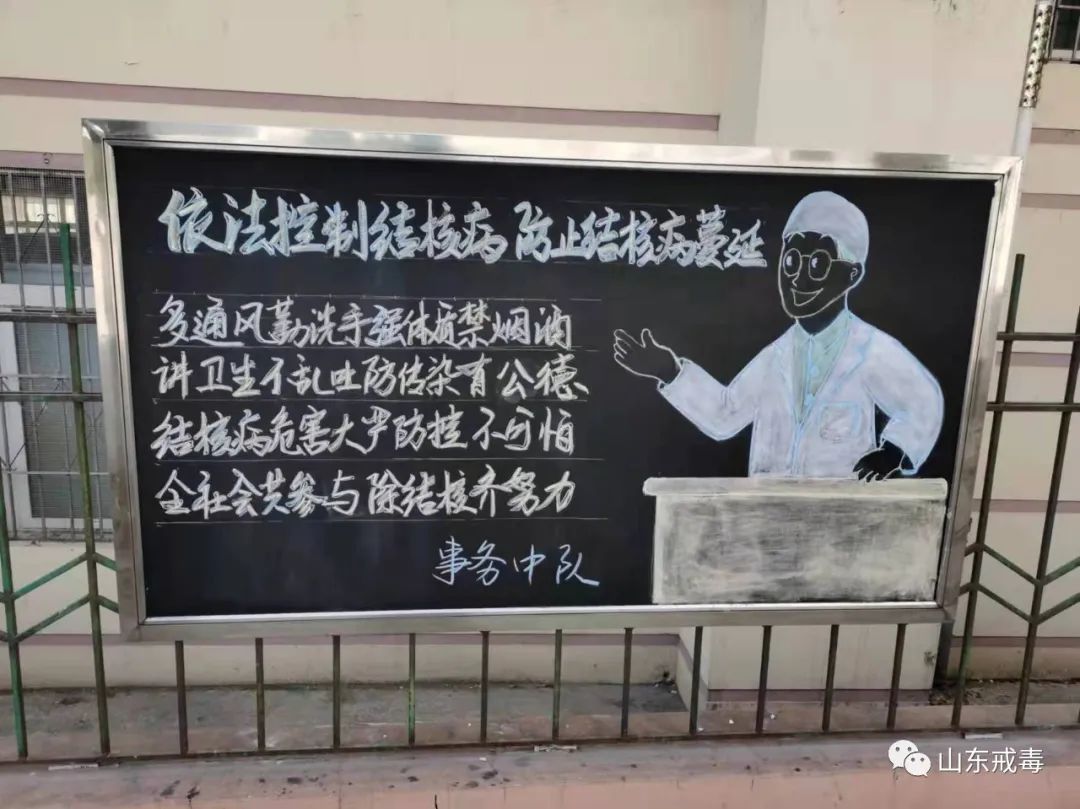 依法控制结核病 防止结核病蔓延
多通风勤洗手强体质禁烟酒
讲卫生不乱吐防传染有公德
结核病危害大严防控不可怕
全社会共参与除结核齐努力
事务中队
山东戒毒